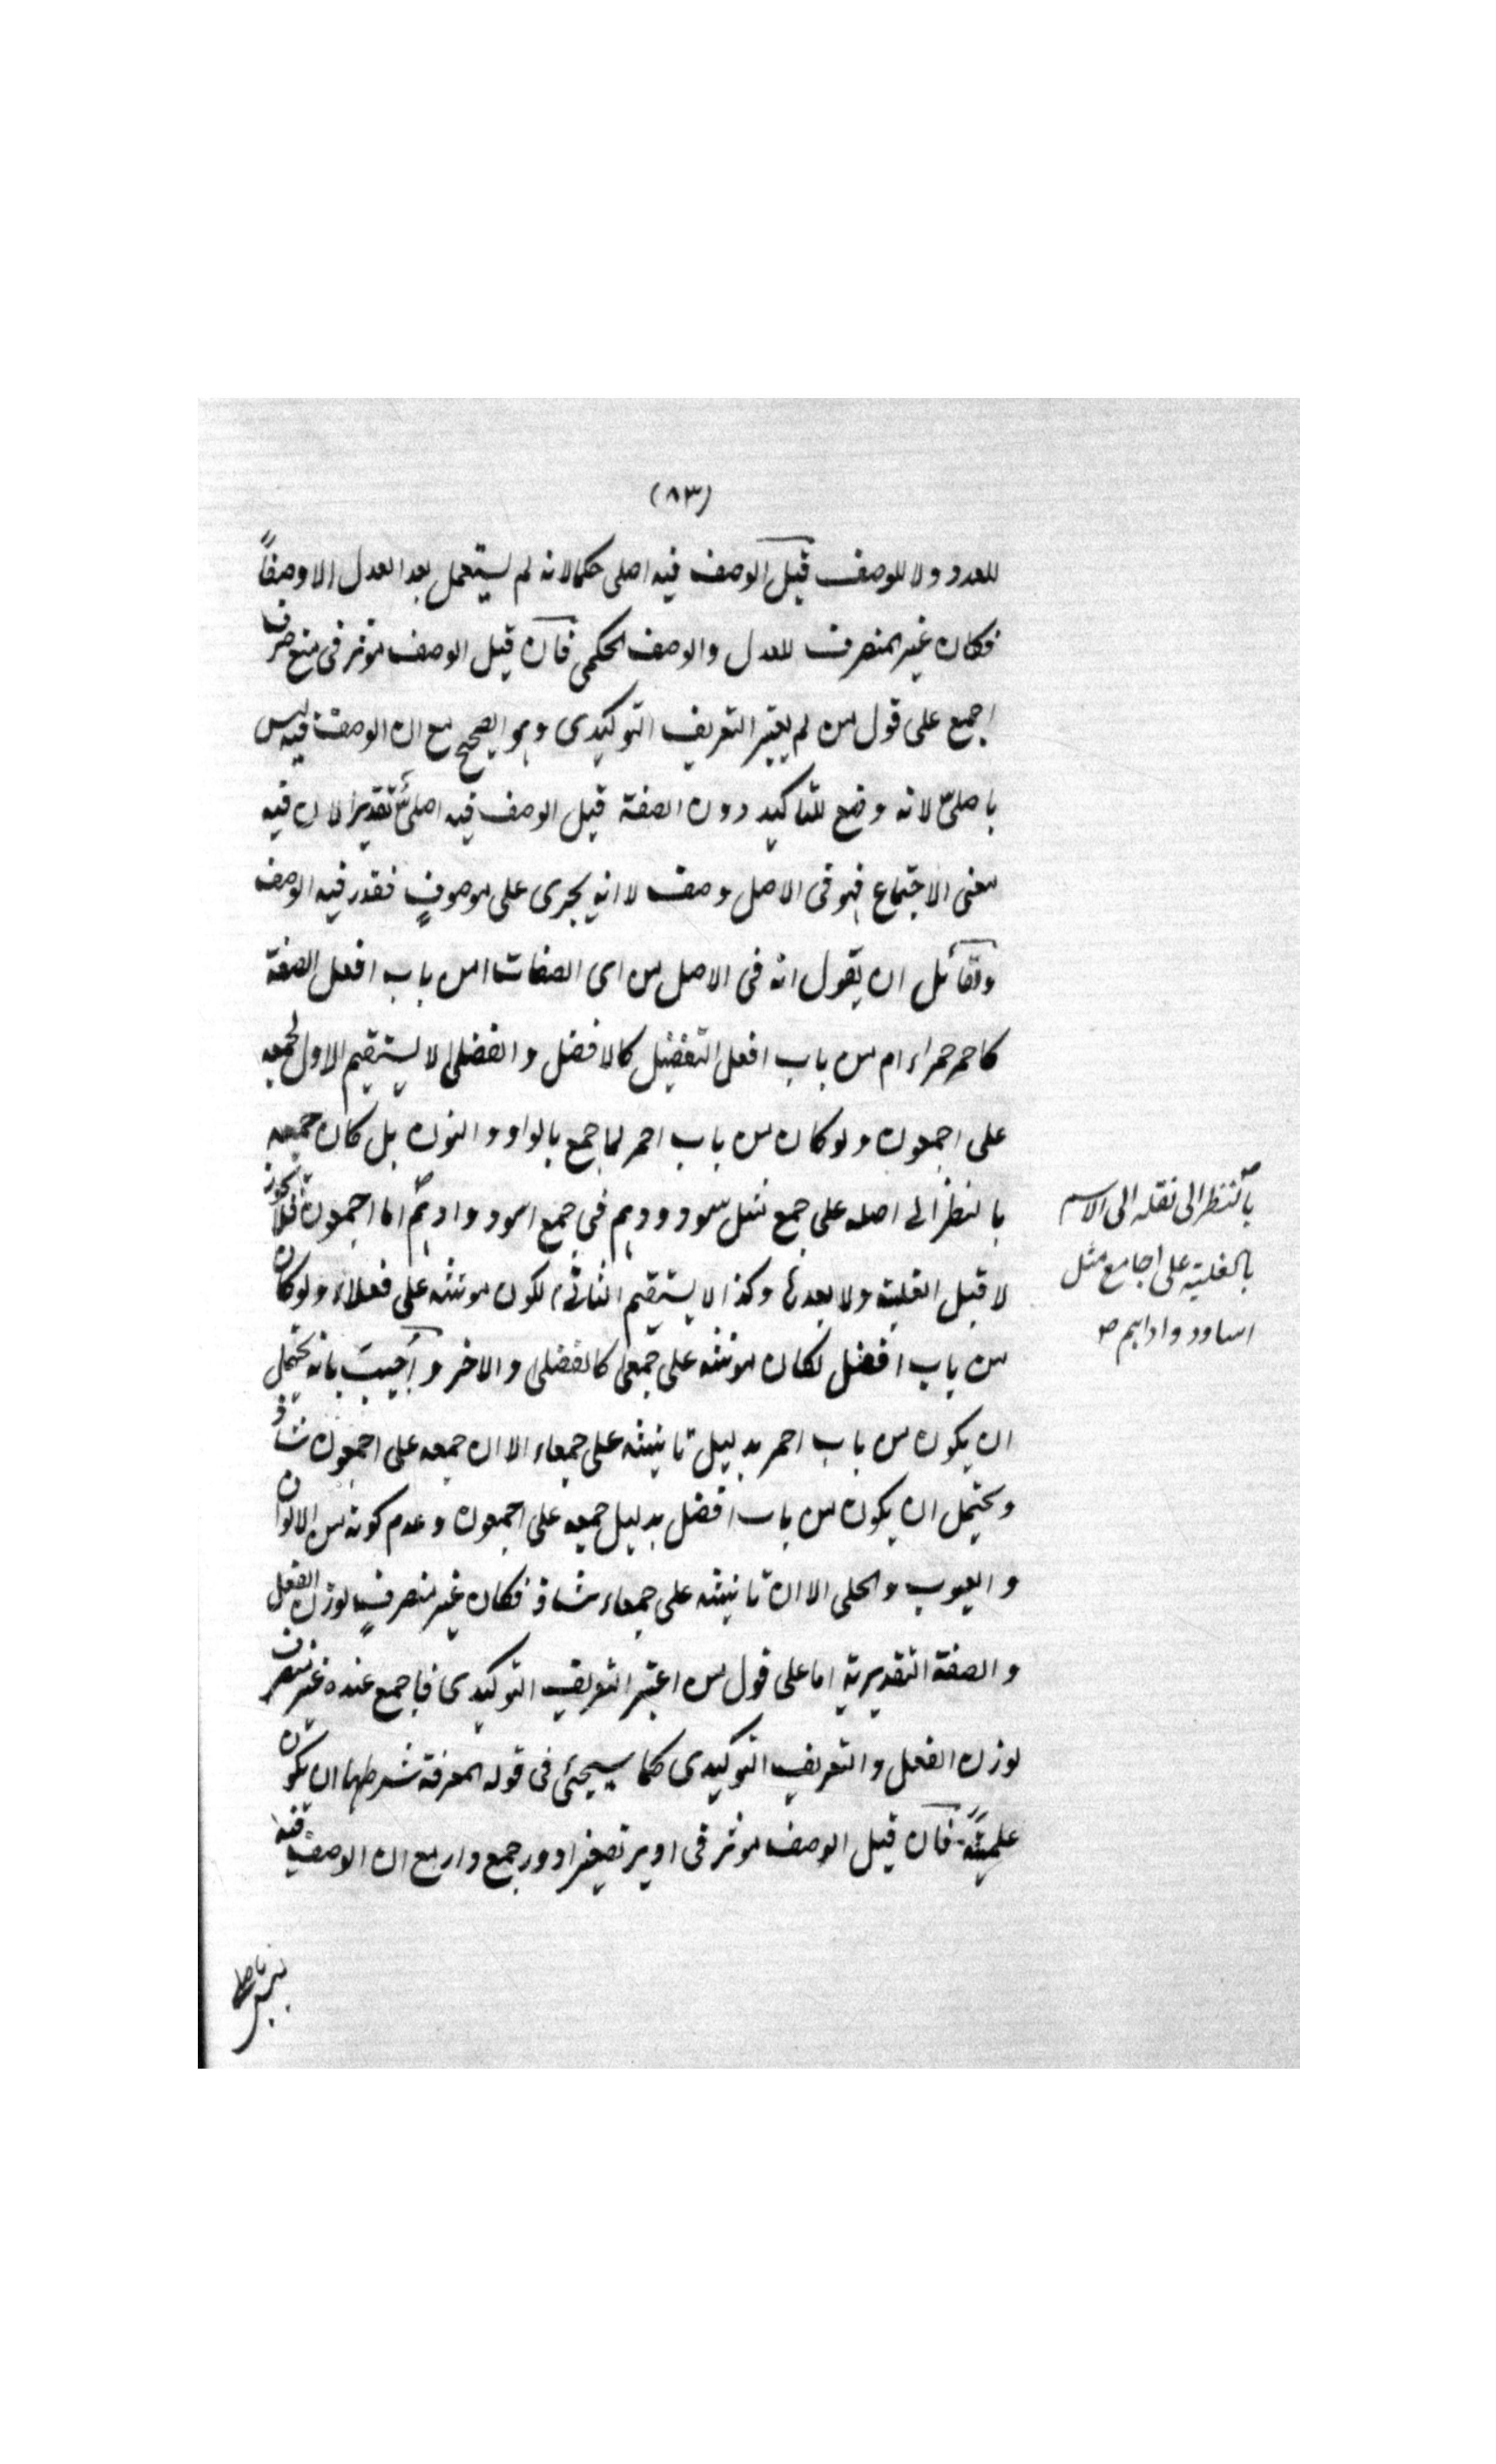 (٨٣)
للعدد ولا للوصف قيل الوصف فيه اصلى حكما لانه لم يستعمل بعد العدل الا وصفاً
فكان غير المنصرف للعدل والوصف الحكمى فان قيل الوصف مؤثر فى منع صرف
اجمع على قول من لم يعتبر التعريف التوكيدى وهو الصحيح مع ان الوصف فيه ليس
باصلىّ لانه وضع للتاكيد دون الصفة قيل الوصف فيه اصلىٌّ تقديرا لان فيه
معنى الاجتماع فهو فى الاصل وصف لا انه يجرى على موصوفٍ فقدر فيه الوصف
ولقائل ان يقول انه فى الاصل من اى الصفات امن باب افعل الصفة
كاحمر حمراء ام من باب افعل التفضيل كالافضل والفضلى لا يستقيم الاول لجمعه
على اجمعون ولو كان من باب احمر لما جمع بالواو والنون بل كان جمعه
بالنظر الى اصله على جمع مثل سود ودهم فى جمع اسود وادهم اما اجمعون فلا يجوز
لا قبل الغلبة ولا بعدها وكذا لا يستقيم الثانى لكون مونثه على فعلاء ولو كان
من باب افضل لكان مونثه على جمعى كالفضلى والاخر واُجيبَ بانه يحتمل
ان يكون من باب احمر بدليل تانيثه على جمعاء الا ان جمعه على اجمعون شاذ
ويحتمل ان يكون من باب افضل بدليل جمعه على اجمعون وعدم كونه من الالوان
والعيوب والحلى الا ان تانيثه على جمعاء شاذ فكان غير منصرفٍ لوزن الفعل
والصفة التقديرية اما على قول من اعتبر التعريف التوكيدى فاجمع عنده غير منصرف
لوزن الفعل والتعريف التوكيدى كما سيجئ فى قوله المعرفة شرطها ان تكون
علميَّةً فان قيل الوصف مؤثر فى ادير تصغير ادور جمع دار مع ان الوصف فيه
بالنظر الى نقله الى الاسم
بالغلبة على اجامع مثل
اساود واداهم صح
ليس باصلى